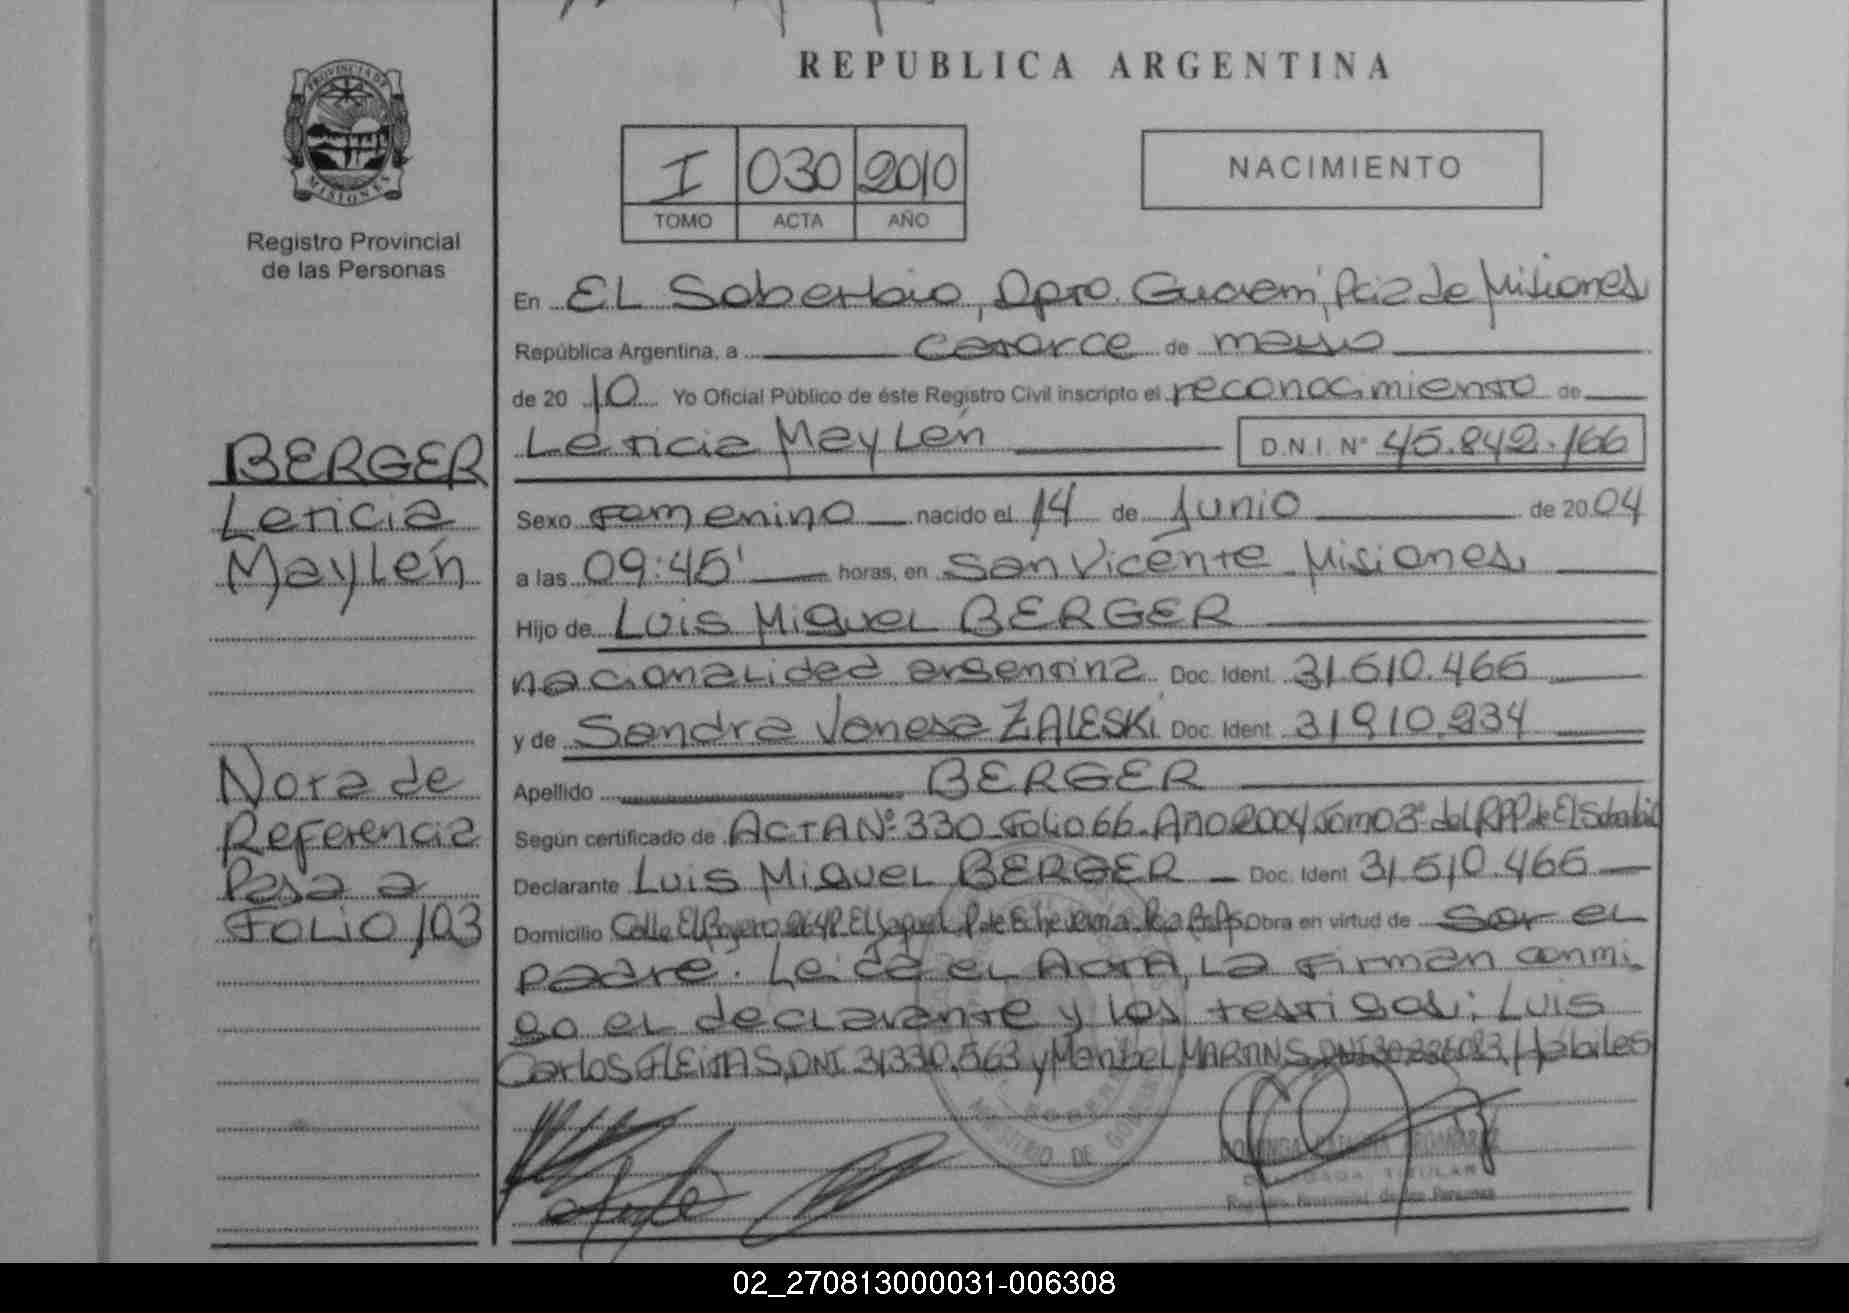 REPUBLICA ARGENTINA
PROVINCIA DE
MISIONES
Registro Provincial
de las Personas
I 030 2010
TOMO ACTA AÑO
NACIMIENTO
En EL Soberbio, Dpto. Guarani, Pcia de Misiones
República Argentina, a catorce de mayo
de 20 10 Yo Oficial Público de éste Registro Civil inscripto el reconocimiento de
Leticia Maylén D.N.I. Nº 45.842.166
Sexo Femenino nacido el 14 de Junio de 20 04
a las 09:45' horas, en San Vicente Misiones
Hijo de Luis Miguel BERGER
nacionalidad argentina Doc. Ident. 31.510.466
y de Sandra Vanesa ZALESKI Doc. Ident. 31.910.934
Apellido BERGER
Según certificado de ACTA Nº 330 Folio 66. Año 2004 Tomo 3º del RPP de El Soberbio
Declarante Luis Miguel BERGER Doc. Ident 31.510.466
Domicilio Calle El 2648 El Jaguel P. de Echeverria Pcia Bs As Obra en virtud de Ser el
padre. Leída el Acta, La Firman conmi
go el declarante y los testigos: Luis
Carlos FLEITAS, DNI 31330.563 y Maribel MARTINS, DNI Hábiles
BERGER
Leticia
Maylén
Nota de
Referencia
Pasa a
FOLIO 103
MINISTERIO DE GOBIERNO
DELEGADA TITULAR
Registro Provincial de las Personas
02_270813000031-006308